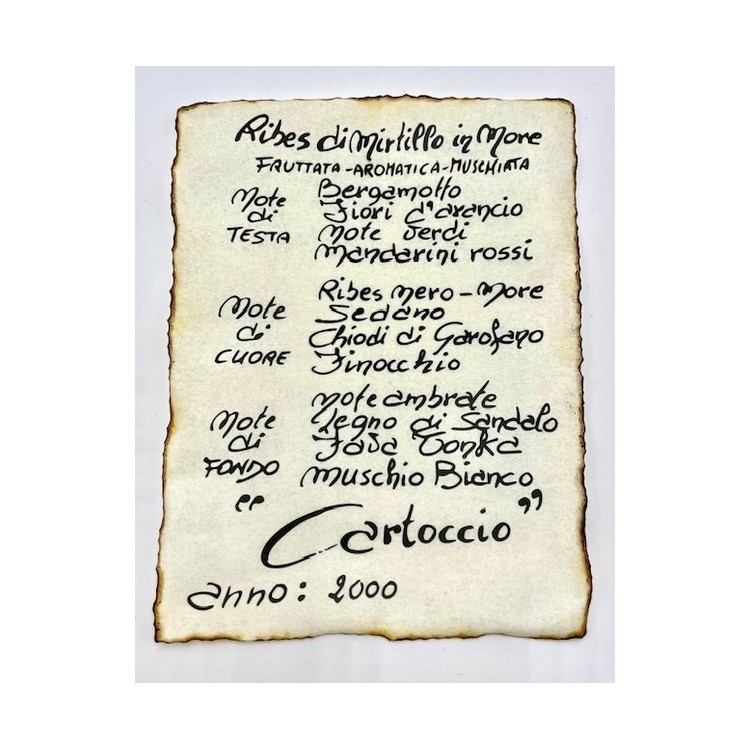 Ribes di Mirtillo in More
FRUTTATA-AROMATICA-MUSCHIATA
Note di TESTA
Bergamotto
Fiori d'arancio
Note Verdi
Mandarini rossi
Note di CUORE
Ribes nero - More
Sedano
Chiodi di Garofano
Finocchio
Note di FONDO
note ambrate
Legno di Sandalo
Fava Tonka
Muschio Bianco
"Cartoccio"
anno: 2000